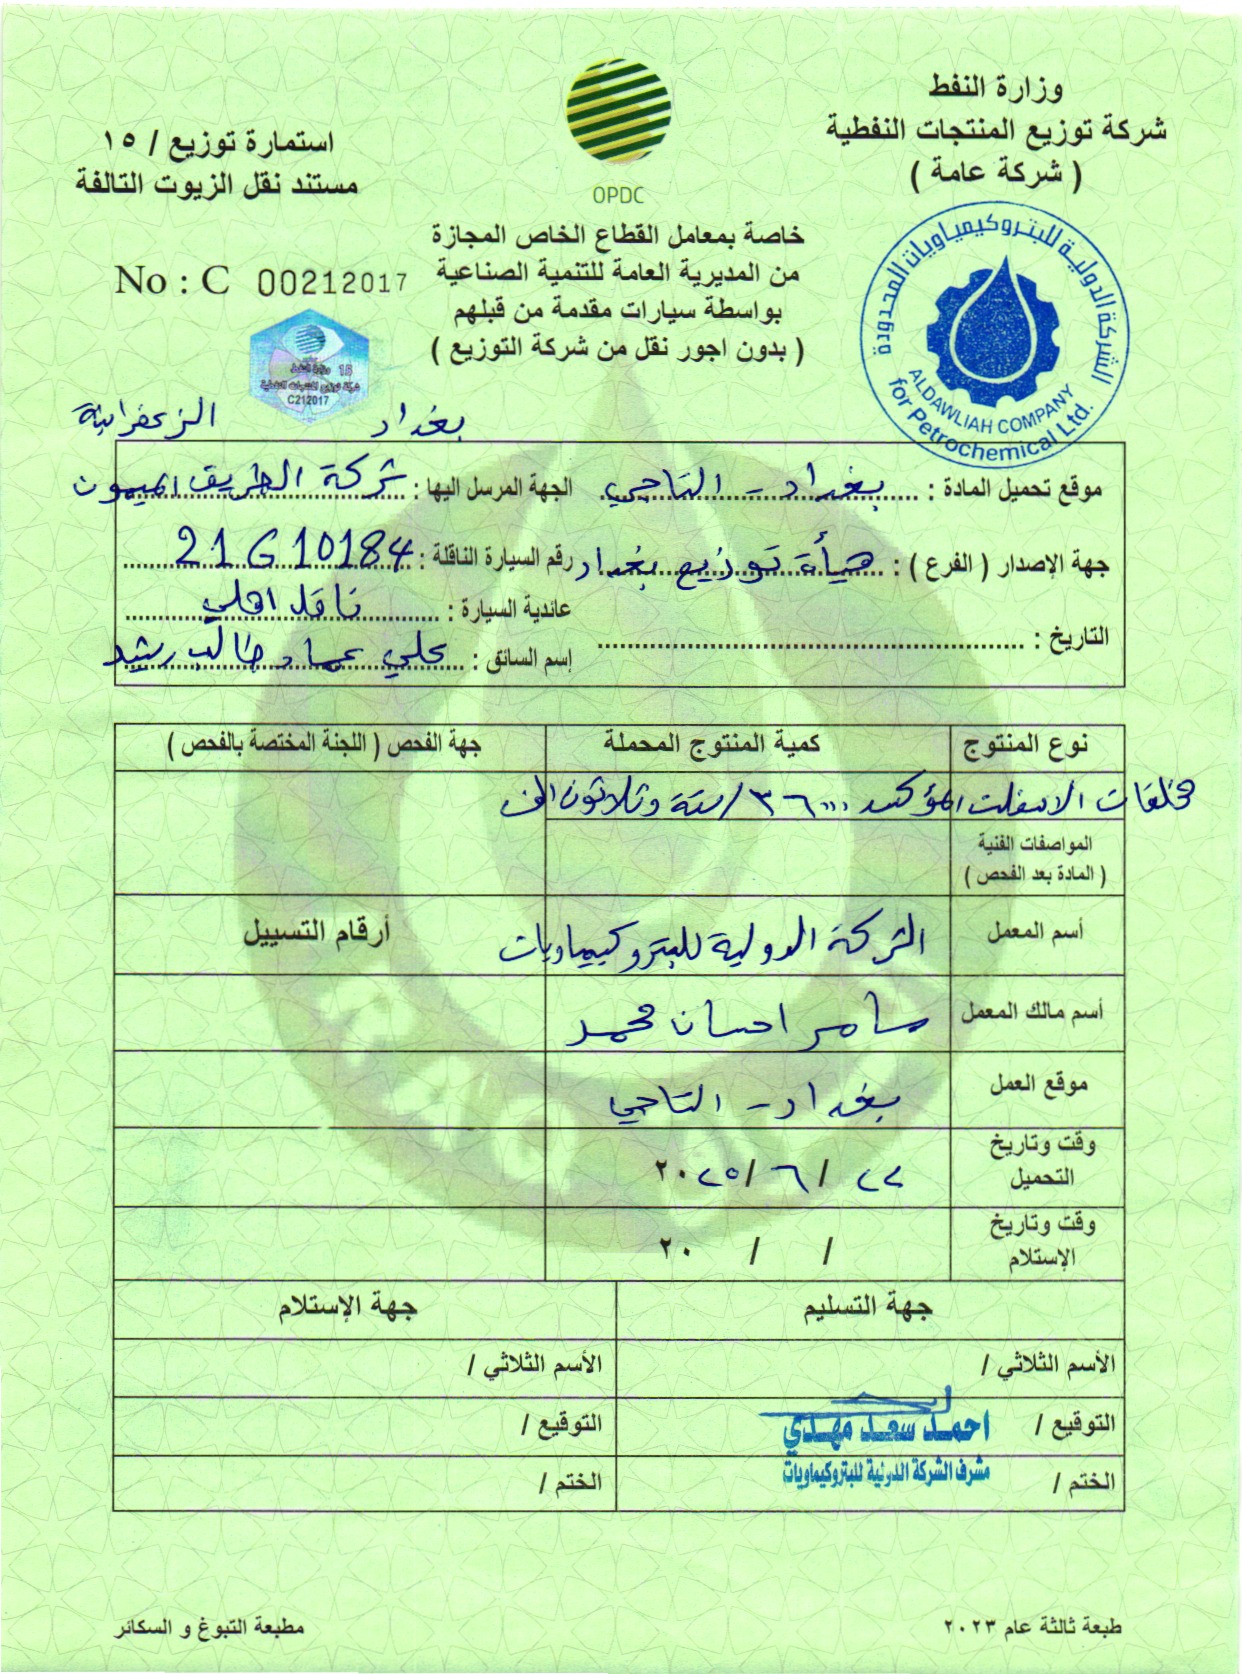 وزارة النفط
شركة توزيع المنتجات النفطية
( شركة عامة )
OPDC
استمارة توزيع / ١٥
مستند نقل الزيوت التالفة
خاصة بمعامل القطاع الخاص المجازة
من المديرية العامة للتنمية الصناعية
بواسطة سيارات مقدمة من قبلهم
( بدون اجور نقل من شركة التوزيع )
No : C 00212017
15 وزارة النفط
شركة توزيع المنتجات النفطية
C212017
الشركة الدولية للبتروكيمياويات المحدودة
ALDAWLIAH COMPANY
for Petrochemical Ltd.
بغداد الزعفرانية
موقع تحميل المادة : بغداد - التاجي
الجهة المرسل اليها : شركة الطريق الميمون
جهة الإصدار ( الفرع ) : هيأة توزيع بغداد
رقم السيارة الناقلة : 21 G 10184
عائدية السيارة : ناقل اهلي
التاريخ :
إسم السائق : علي عماد طالب رشيد
نوع المنتوج كمية المنتوج المحملة جهة الفحص ( اللجنة المختصة بالفحص )
مخلفات الاسفلت المؤكسد ٣٦٠٠٠ / ستة وثلاثون الف
المواصفات الفنية
( المادة بعد الفحص )
أسم المعمل الشركة الدولية للبتروكيمياويات أرقام التسييل
أسم مالك المعمل سامر احسان محمد
موقع العمل بغداد - التاجي
وقت وتاريخ
التحميل ٢٢ / ٦ / ٢٠٢٥
وقت وتاريخ
الإستلام / / ٢٠
جهة التسليم جهة الإستلام
الأسم الثلاثي / الأسم الثلاثي /
التوقيع / احمد سعد مهدي التوقيع /
الختم / مشرف الشركة الدولية للبتروكيماويات الختم /
طبعة ثالثة عام ٢٠٢٣ مطبعة التبوغ و السكائر